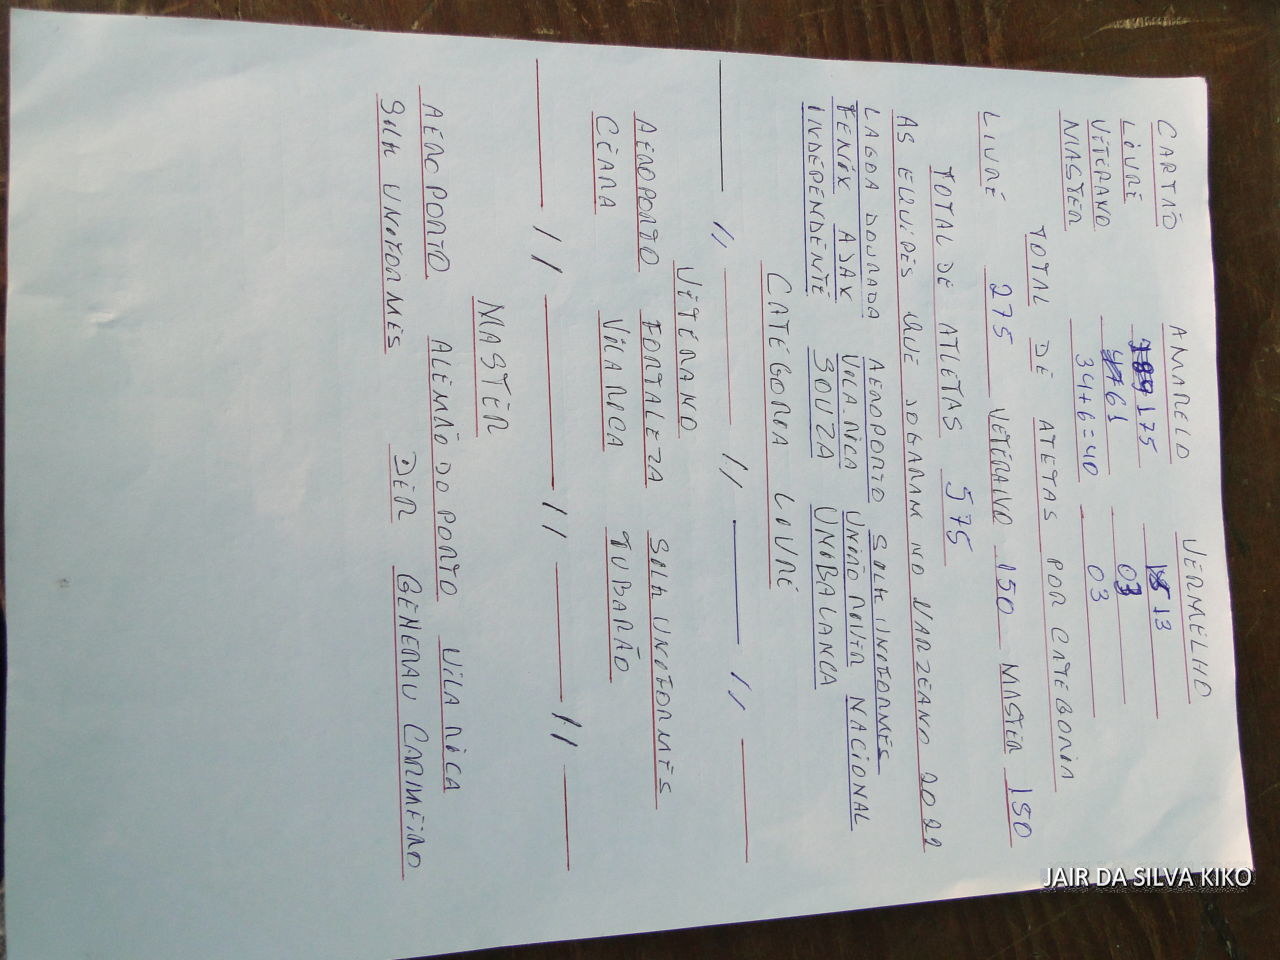 CARTÃO AMARELO VERMELHO
LIVRÉ 175 13
VÉTÉRANO 61 03
MASTÉR 34+6=40 03
TOTAL DÉ ATETAS POR CATEGORIA
LIVRÉ 275 VÉTÉRANO 150 MASTER 150
TOTAL DÉ ATLÉTAS 575
AS EQUIPÉS QUE JOGARAM NO VARZEANO 2022
LAGOA DOURADA AEROPORTO SILK UNIFORMÉS
FENIX AJAX VILA RICA UNIÃO NACIONAL
INDÉPÉNDÉNTÉ SOUZA UNIBALANCA
CATÉGORIA LIVRÉ
VÉTÉRANO
AEROPORTO FORTALEZA SILK UNIFORMÉS
CÉARA VILA RICA TUBARÃO
MASTÉR
AEROPORTO ALÉMÃO DO PORTO VILA RICA
SILK UNIFORMÉS DÉR GENERAU CARNEIRO
JAIR DA SILVA KIKO